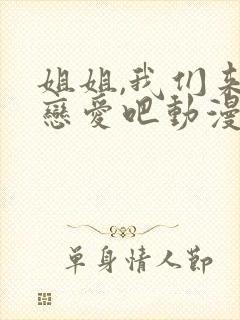 姐姐,我们来
戀愛吧動漫
單身情人節